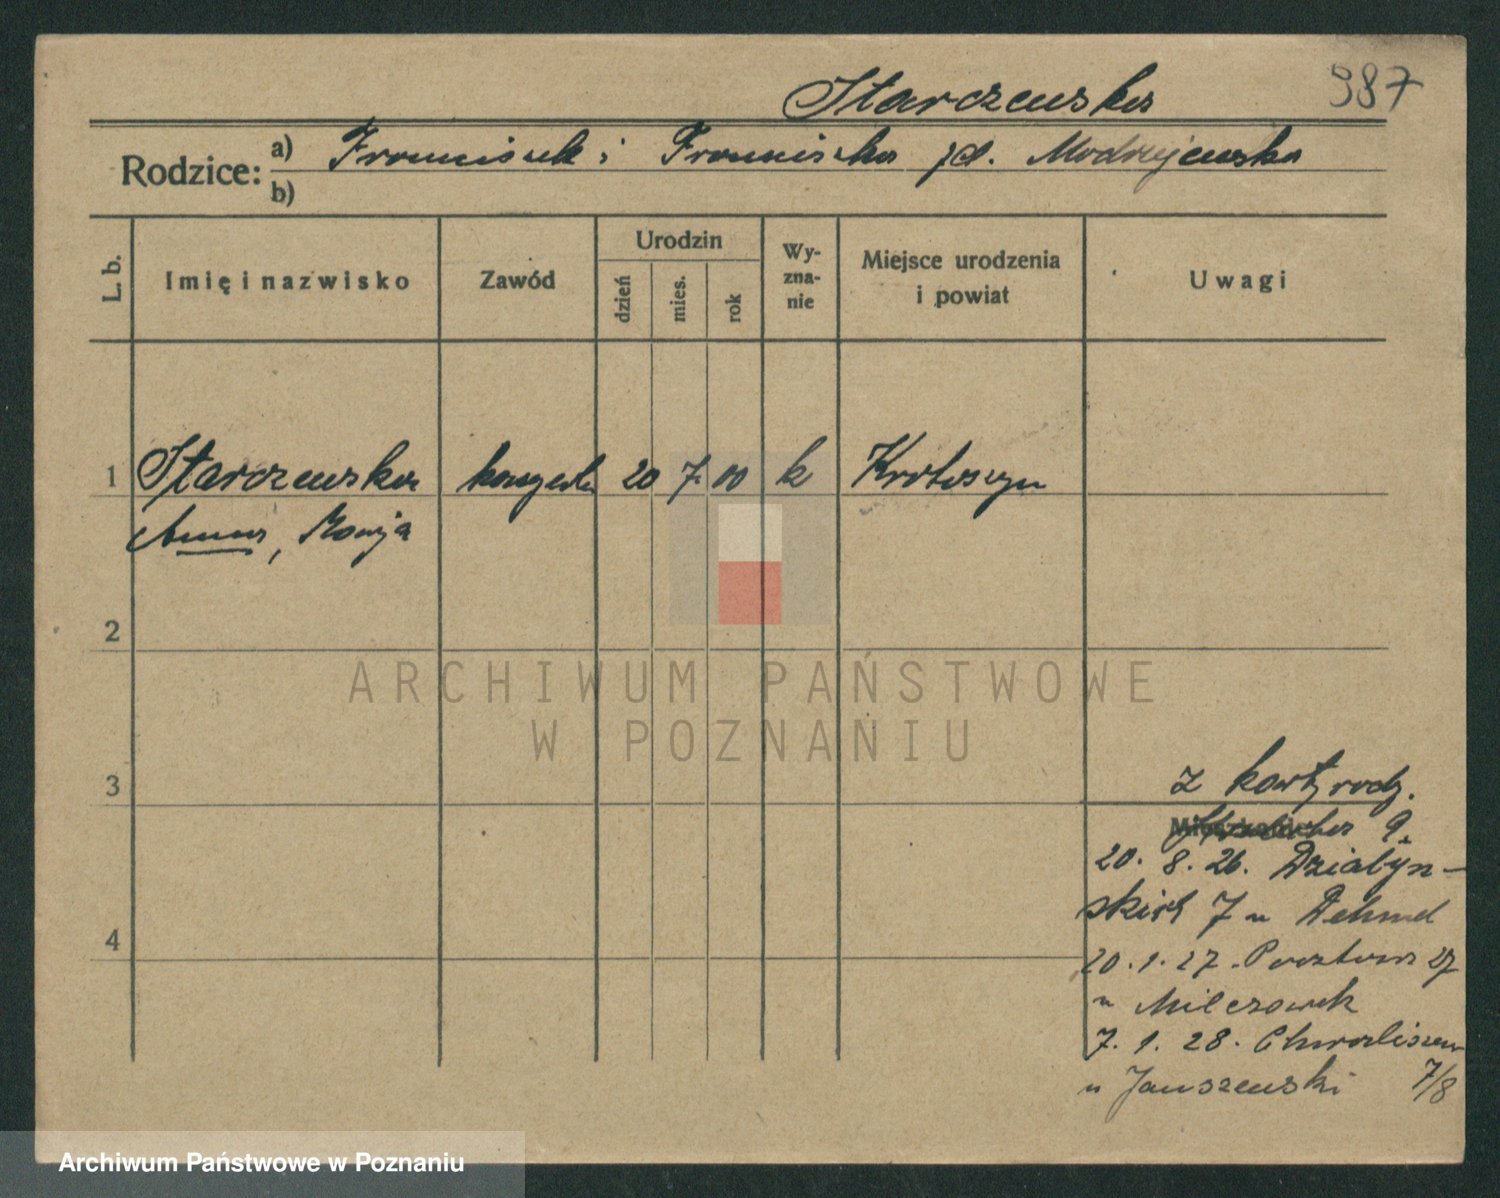 Starczewska 987
Rodzice: a) Franciszek i Franciszka zd. Modrzejewska
b)
L. b. Imię i nazwisko Zawód Urodzin dzień mies. rok Wy-zna-nie Miejsce urodzenia i powiat Uwagi
1 Starczewska 20 7. 00 k Krotoszyn
Anna, Marja
2
ARCHIWUM PAŃSTWOWE
W POZNANIU
3 z karty rodz.
20. 8. 26. Działyń-
skich 7 u Dehmel
4
20. 1. 27. Pocztowa 27
u Milczarek
7. 1. 28. Chwaliszewo
u Januszewski 7/8
Archiwum Państwowe w Poznaniu